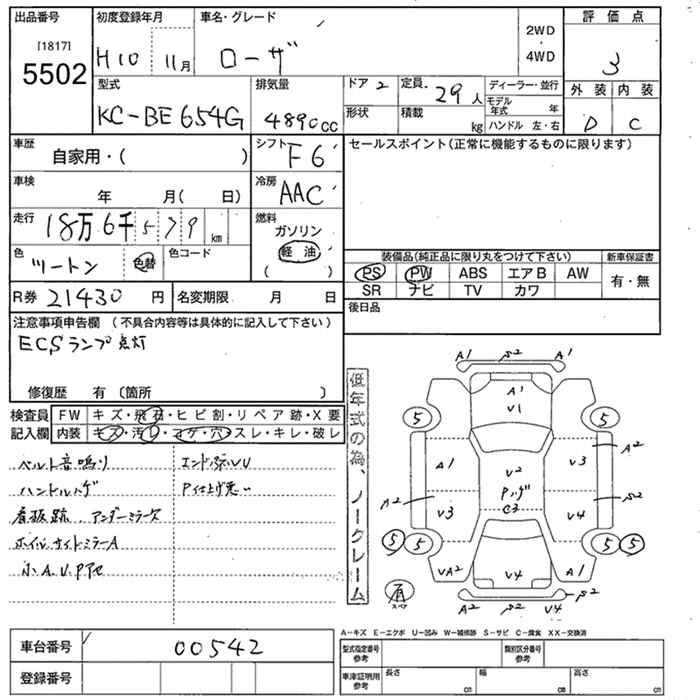 出品番号 初度登録年月 車名・グレード 評価点
[1817]
5502 H10 11月 ローザ 2WD・4WD 3
型式 排気量 ドア 2 定員 29人 ディーラー・並行 外装 内装
KC-BE654G 4890cc 形状 積載 kg モデル年式 年 D C
ハンドル 左・右
車歴 シフト F6 セールスポイント(正常に機能するものに限ります)
自家用・( )
車検 年 月( 日) 冷房 AAC
走行 18万6千579km 燃料
ガソリン
軽油
( )
色 ツートン 色替 色コード
装備品(純正品に限り丸をつけて下さい) 新車保証書
PS PW ABS エアB AW 有・無
SR ナビ TV カワ
R券 21430円 名変期限 月 日 後日品
注意事項申告欄 (不具合内容等は具体的に記入して下さい)
ECSランプ点灯
修復歴 有 〔箇所 〕
検査員 FW キズ・飛石・ヒビ割・リペア跡・X要
記入欄 内装 キズ・汚レ・コゲ・穴・スレ・キレ・破レ
ベルト音鳴り
ハンドルハゲ P仕上げ悪い
看板跡、アンダーミラーズ
ホイル、サイドミラーA
小A.U.P
低年式の為、ノークレーム
A1 S2 A1
A1
V1
5 5
A1 V2 V3 A2
Pハゲ
A2 V3 C3 V4 S2
5 5 5 5
VA2 V4 A1
有
スペア
A2 S2 V4 S2
A-キズ E-エクボ U-凹み W-補修跡 S-サビ C-腐食 XX-交換済
車台番号 00542
登録番号
型式指定番号 参考 類別区分番号 参考
車体証明用 参考 長さ cm 幅 cm 高さ cm